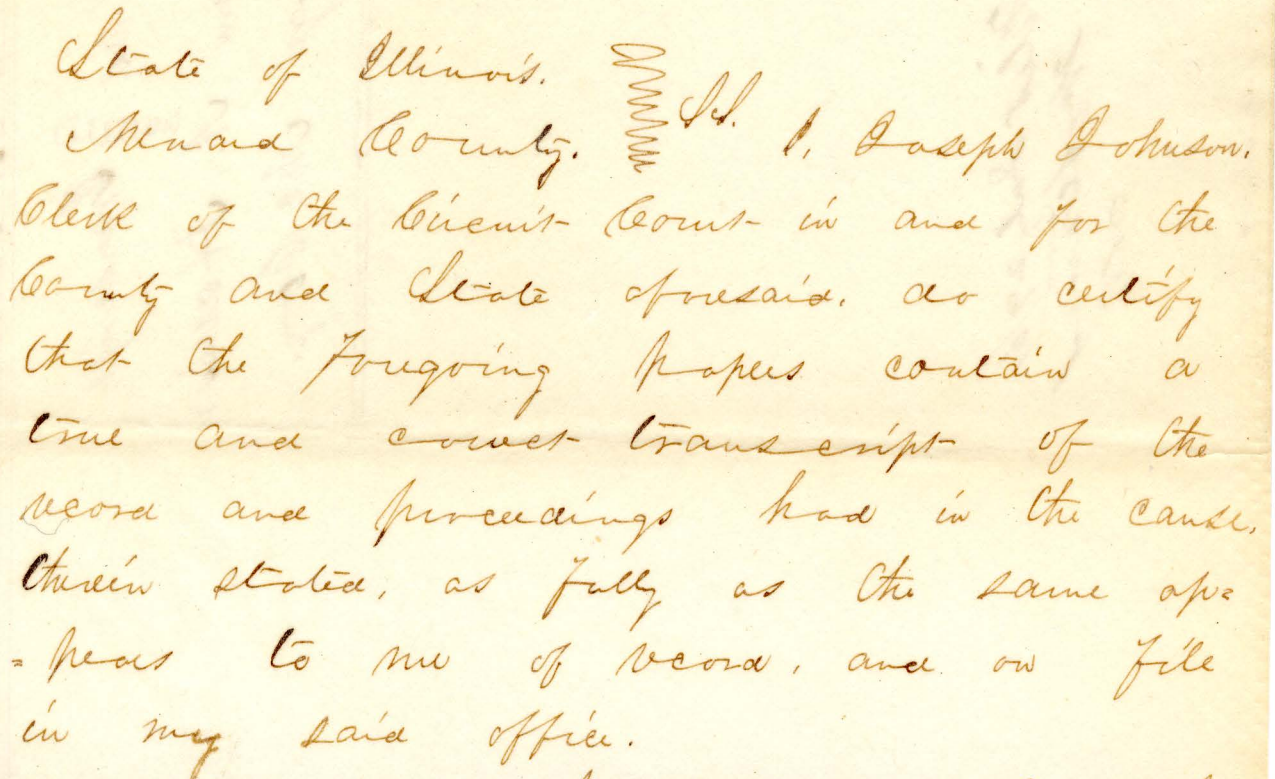 State of Illinois.
Menard County. SS. I, Joseph Johnson.
Clerk of the Circuit Court in and for the
County and State aforesaid. do certify
that the Foregoing papers contain a
true and correct transcript of the
record and proceedings had in the cause.
therein stated, as fully as the same ap=
=pears to me of record, and on file
in my said office.